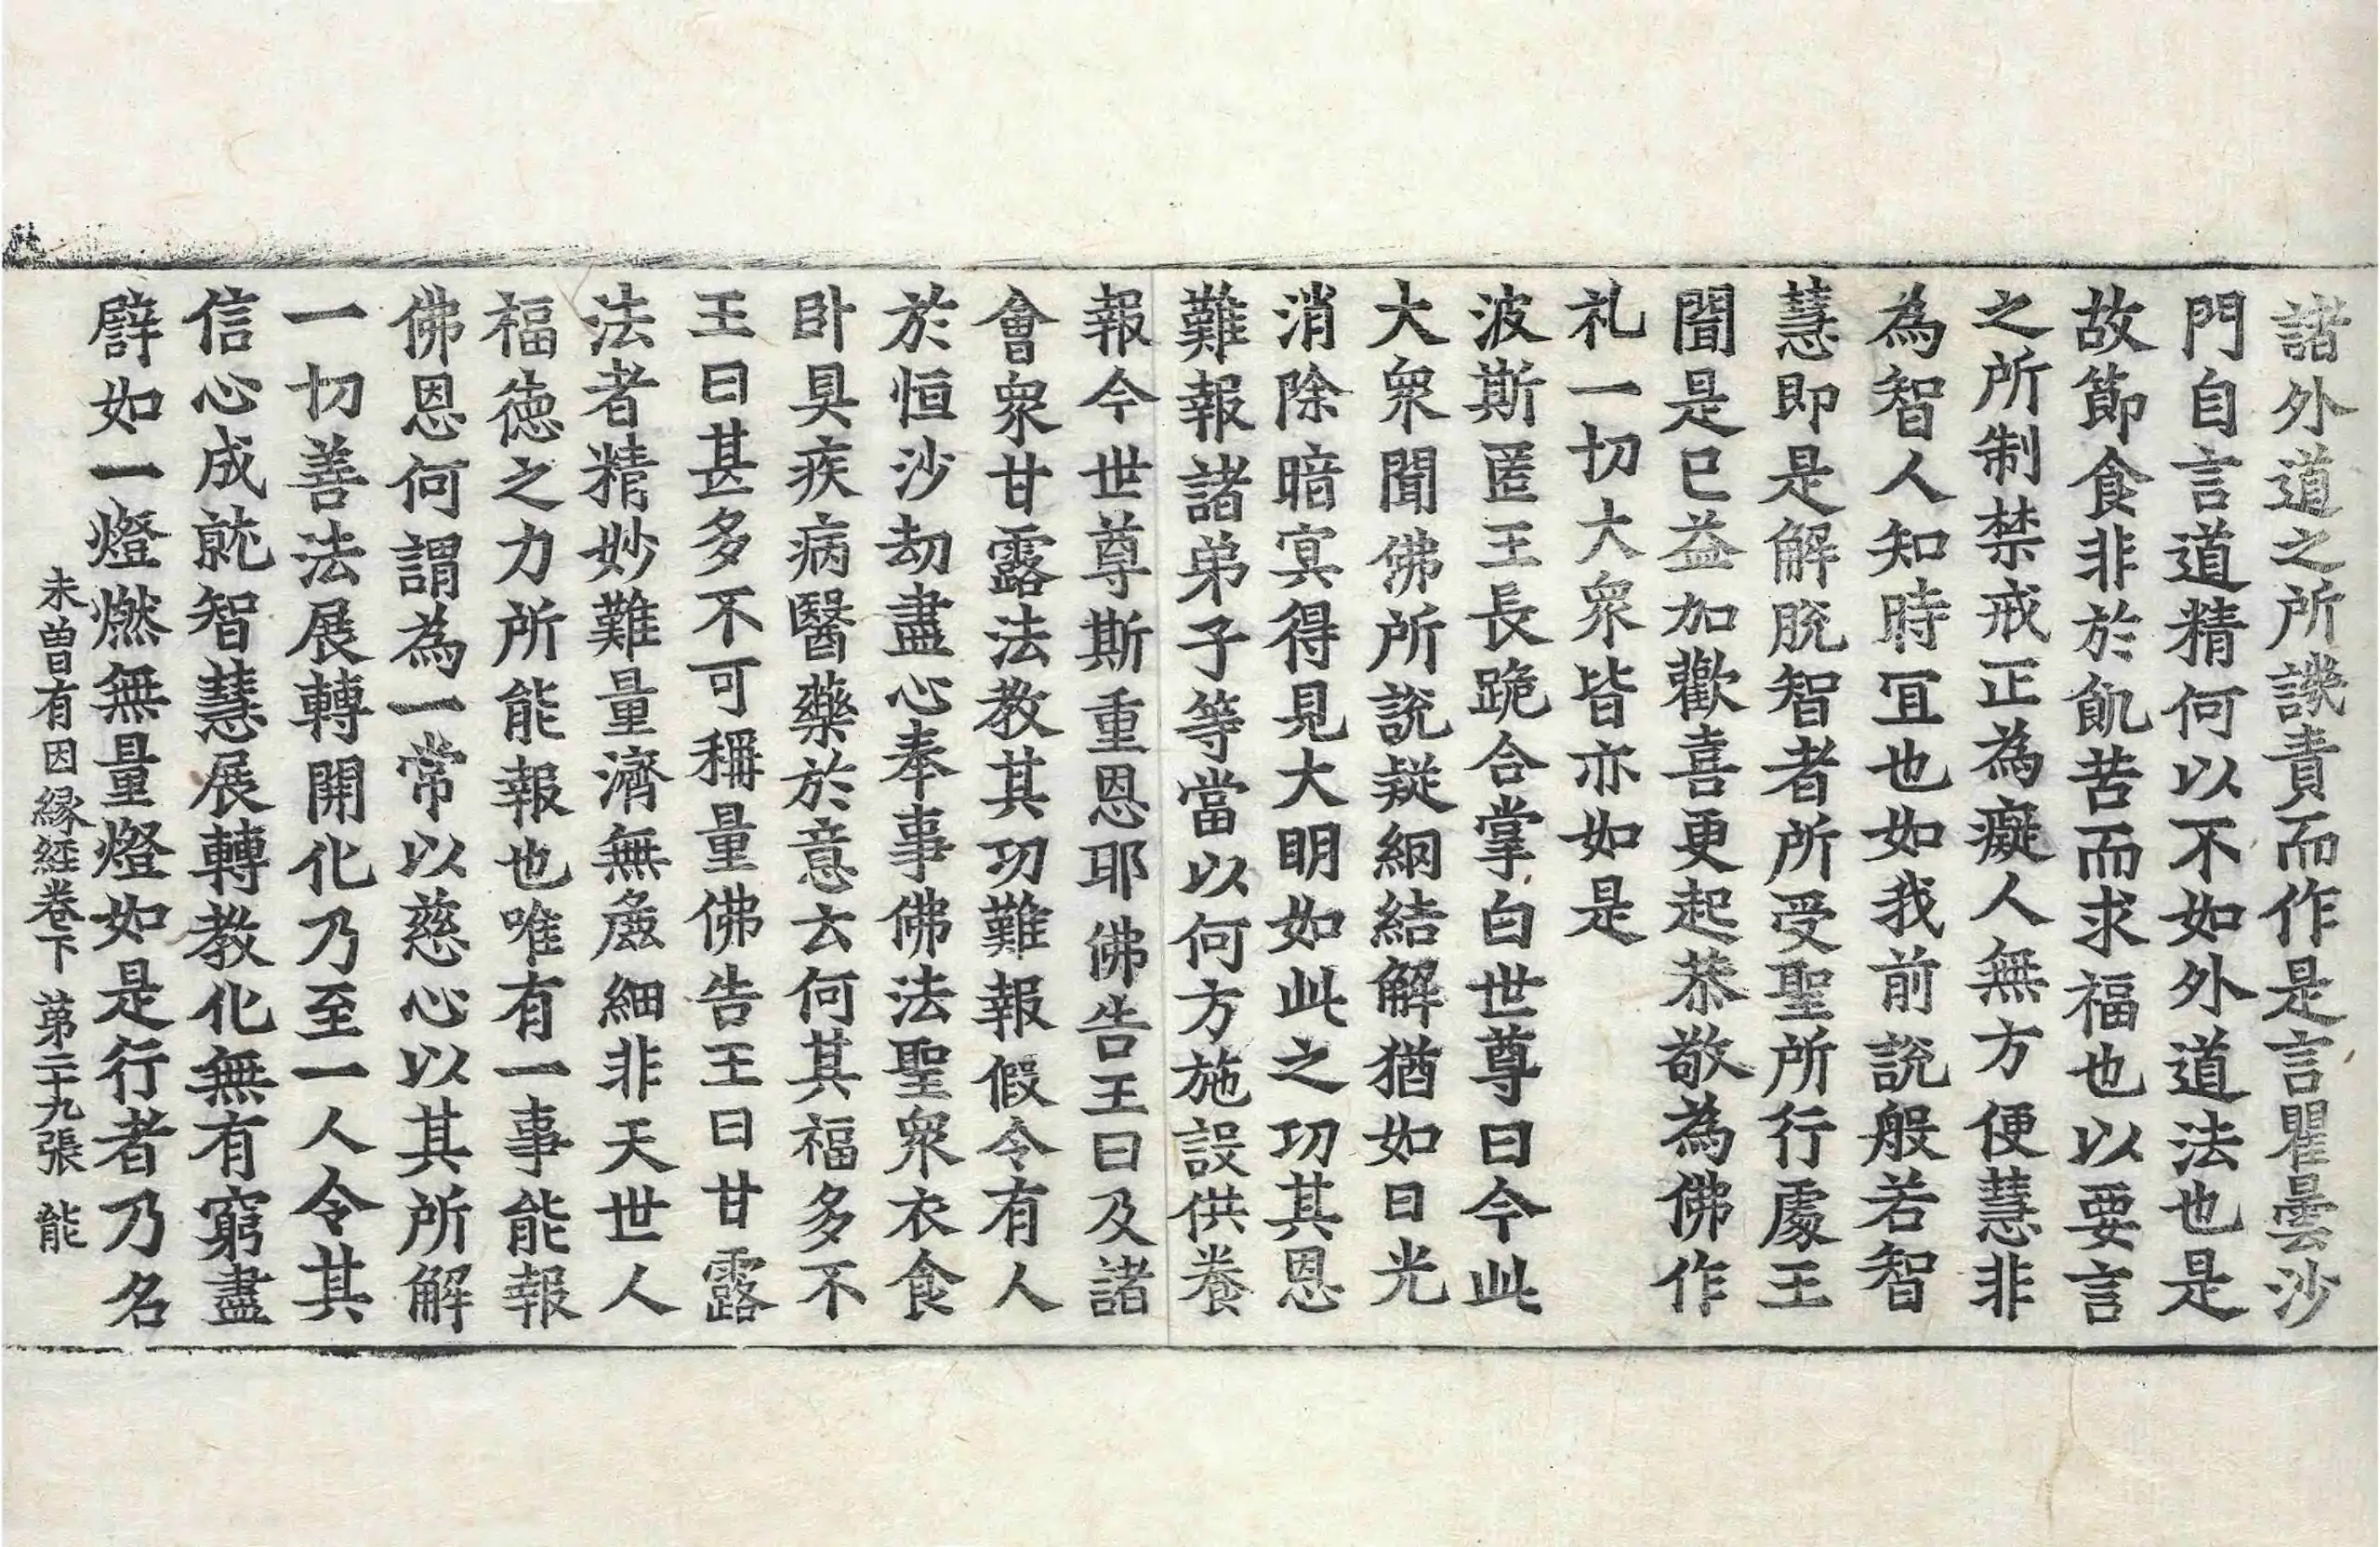 諸外道之所譏責而作是言瞿曇沙
門自言道精何以不如外道法也是
故節食非於飢苦而求福也以要言
之所制禁戒正為癡人無方便慧非
為智人知時冝也如我前說般若智
慧即是解脫智者所受聖所行處王
聞是已益加歡喜更起恭敬為佛作
礼一切大眾皆亦如是
波斯匿王長跪合掌白世尊曰今此
大眾聞佛所說疑網結解猶如日光
消除暗冥得見大明如此之功其恩
難報諸弟子等當以何方施設供養
報今世尊斯重恩耶佛告王曰及諸
會眾甘露法教其功難報假令有人
於恒沙劫盡心奉事佛法聖眾衣食
卧具疾病醫藥於意云何其福多不
王曰甚多不可稱量佛告王曰甘露
法者精妙難量濟無麁細非天世人
福德之力所能報也唯有一事能報
佛恩何謂為一常以慈心以其所解
一切善法展轉開化乃至一人令其
信心成就智慧展轉教化無有窮盡
譬如一燈燃無量燈如是行者乃名
未曾有因緣経卷下 苐二十九張 能